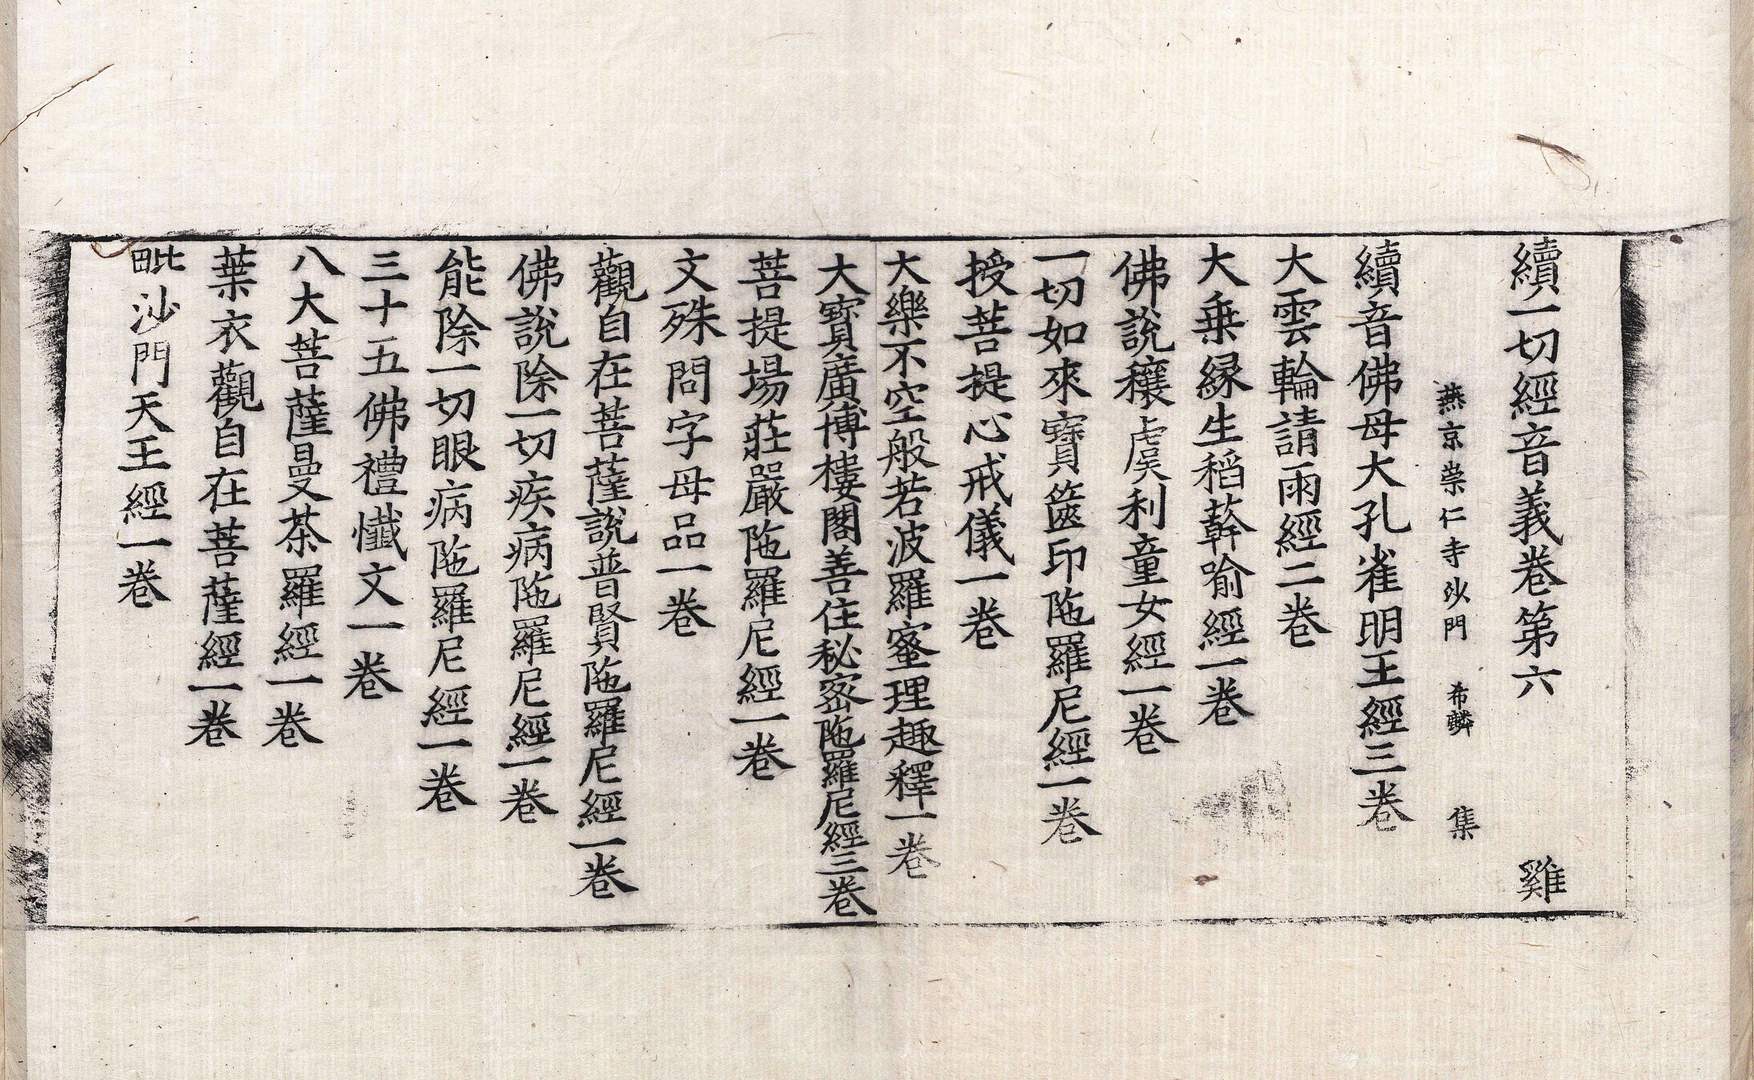 續一切經音義卷第六 雞
燕京崇仁寺沙門 希麟 集
續音佛母大孔雀明王經三卷
大雲輪請雨經二卷
大乗縁生稻𦼮喻經一卷
佛說穰虞利童女經一卷
一切如來寶篋印陁羅尼經一卷
授菩提心戒儀一卷
大樂不空般若波羅蜜理趣釋一卷
大寶廣博樓閣善住秘密陁羅尼經三卷
菩提場莊嚴陁羅尼經一卷
文殊問字母品一卷
觀自在菩薩說普賢陁羅尼經一卷
佛說除一切疾病陁羅尼經一卷
能除一切眼病陁羅尼經一卷
三十五佛禮懺文一卷
八大菩薩曼茶羅經一卷
葉衣觀自在菩薩經一卷
毗沙門天王經一卷